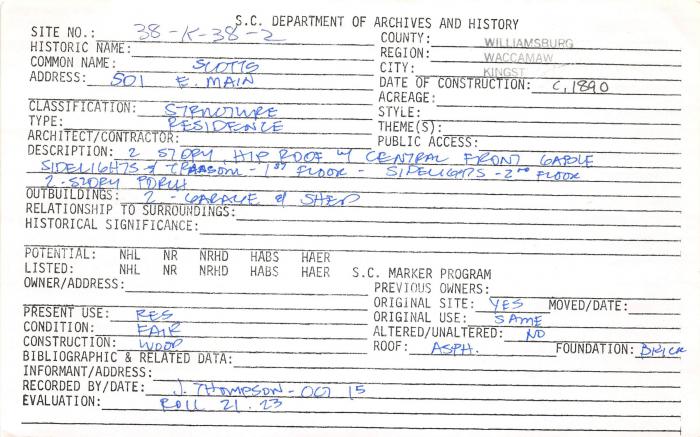 S.C. DEPARTMENT OF ARCHIVES AND HISTORY
SITE NO.: 38-K-38-2 COUNTY: WILLIAMSBURG
HISTORIC NAME: REGION: WACCAMAW
COMMON NAME: SCOTTS CITY: KINGST
ADDRESS: 501 E. MAIN DATE OF CONSTRUCTION: C. 1890
ACREAGE:
CLASSIFICATION: STRUCTURE STYLE:
TYPE: RESIDENCE THEME(S):
ARCHITECT/CONTRACTOR: PUBLIC ACCESS:
DESCRIPTION: 2 STORY, HIP ROOF W/ CENTRAL FRONT GABLE
SIDELIGHTS & TRANSOM - 1ST FLOOR - SIDELIGHTS - 2ND FLOOR
2-STORY PORCH
OUTBUILDINGS: 2 - GARAGE & SHED
RELATIONSHIP TO SURROUNDINGS:
HISTORICAL SIGNIFICANCE:
POTENTIAL: NHL NR NRHD HABS HAER
LISTED: NHL NR NRHD HABS HAER S.C. MARKER PROGRAM
OWNER/ADDRESS: PREVIOUS OWNERS:
ORIGINAL SITE: YES MOVED/DATE:
PRESENT USE: RES ORIGINAL USE: SAME
CONDITION: FAIR ALTERED/UNALTERED: NO
CONSTRUCTION: WOOD ROOF: ASPH. FOUNDATION: BRICK
BIBLIOGRAPHIC & RELATED DATA:
INFORMANT/ADDRESS:
RECORDED BY/DATE: J. THOMPSON - OCT 15
EVALUATION: ROLL 21.23